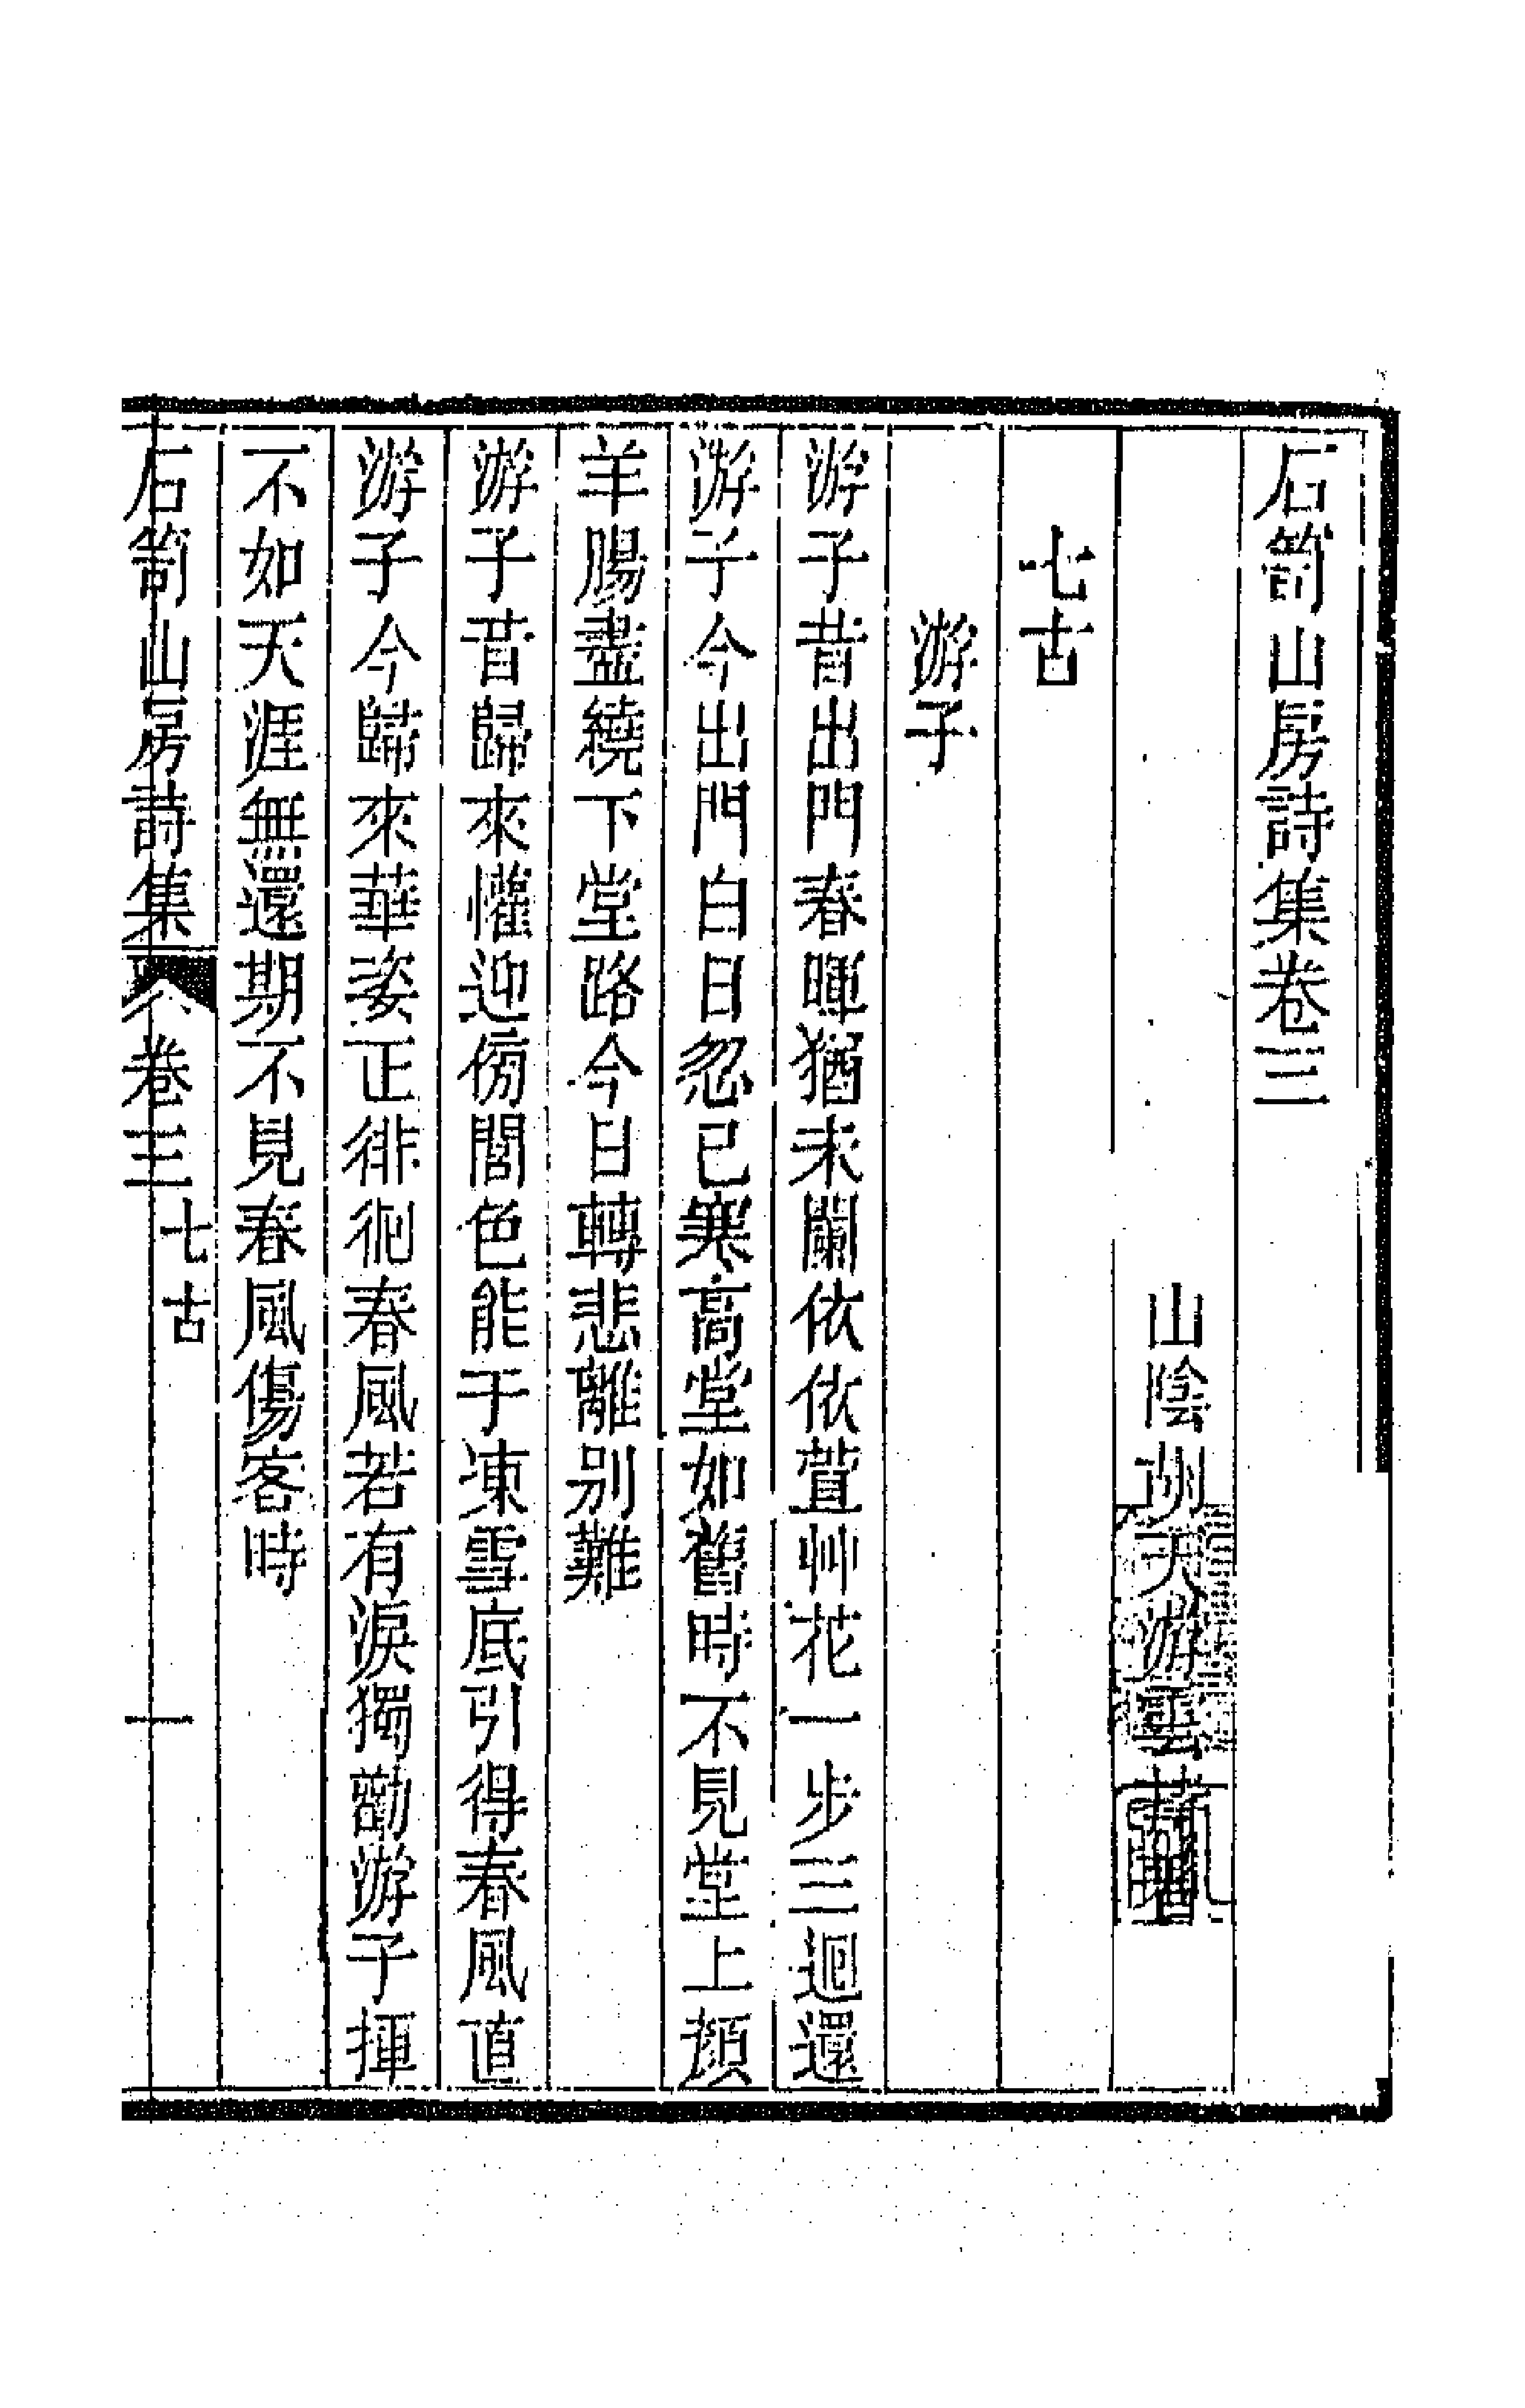 石笥山房詩集卷三
山陰胡天游雲
七古
游子
游子昔出門春暉猶未闌依依萱艸花一步三迴還
游子今出門白日忽已寒高堂如舊時不見堂上顏
羊腸盡繞下堂路今日轉悲離別難
游子昔歸來懽迎傍閭色能于凍雪底引得春風直
游子今歸來華姿正徘徊春風若有淚獨勸游子揮
不如天涯無還期不見春風傷客時
石笥山房詩集 卷三 七古 一